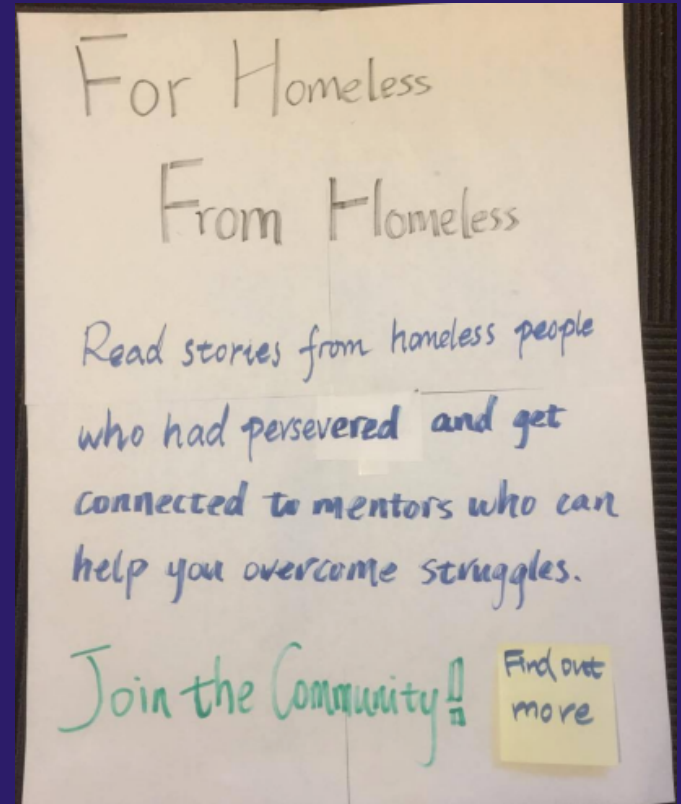 For Homeless
From Homeless
Read stories from homeless people
who had persevered and get
connected to mentors who can
help you overcome struggles.
Join the Community!!
Find out
more